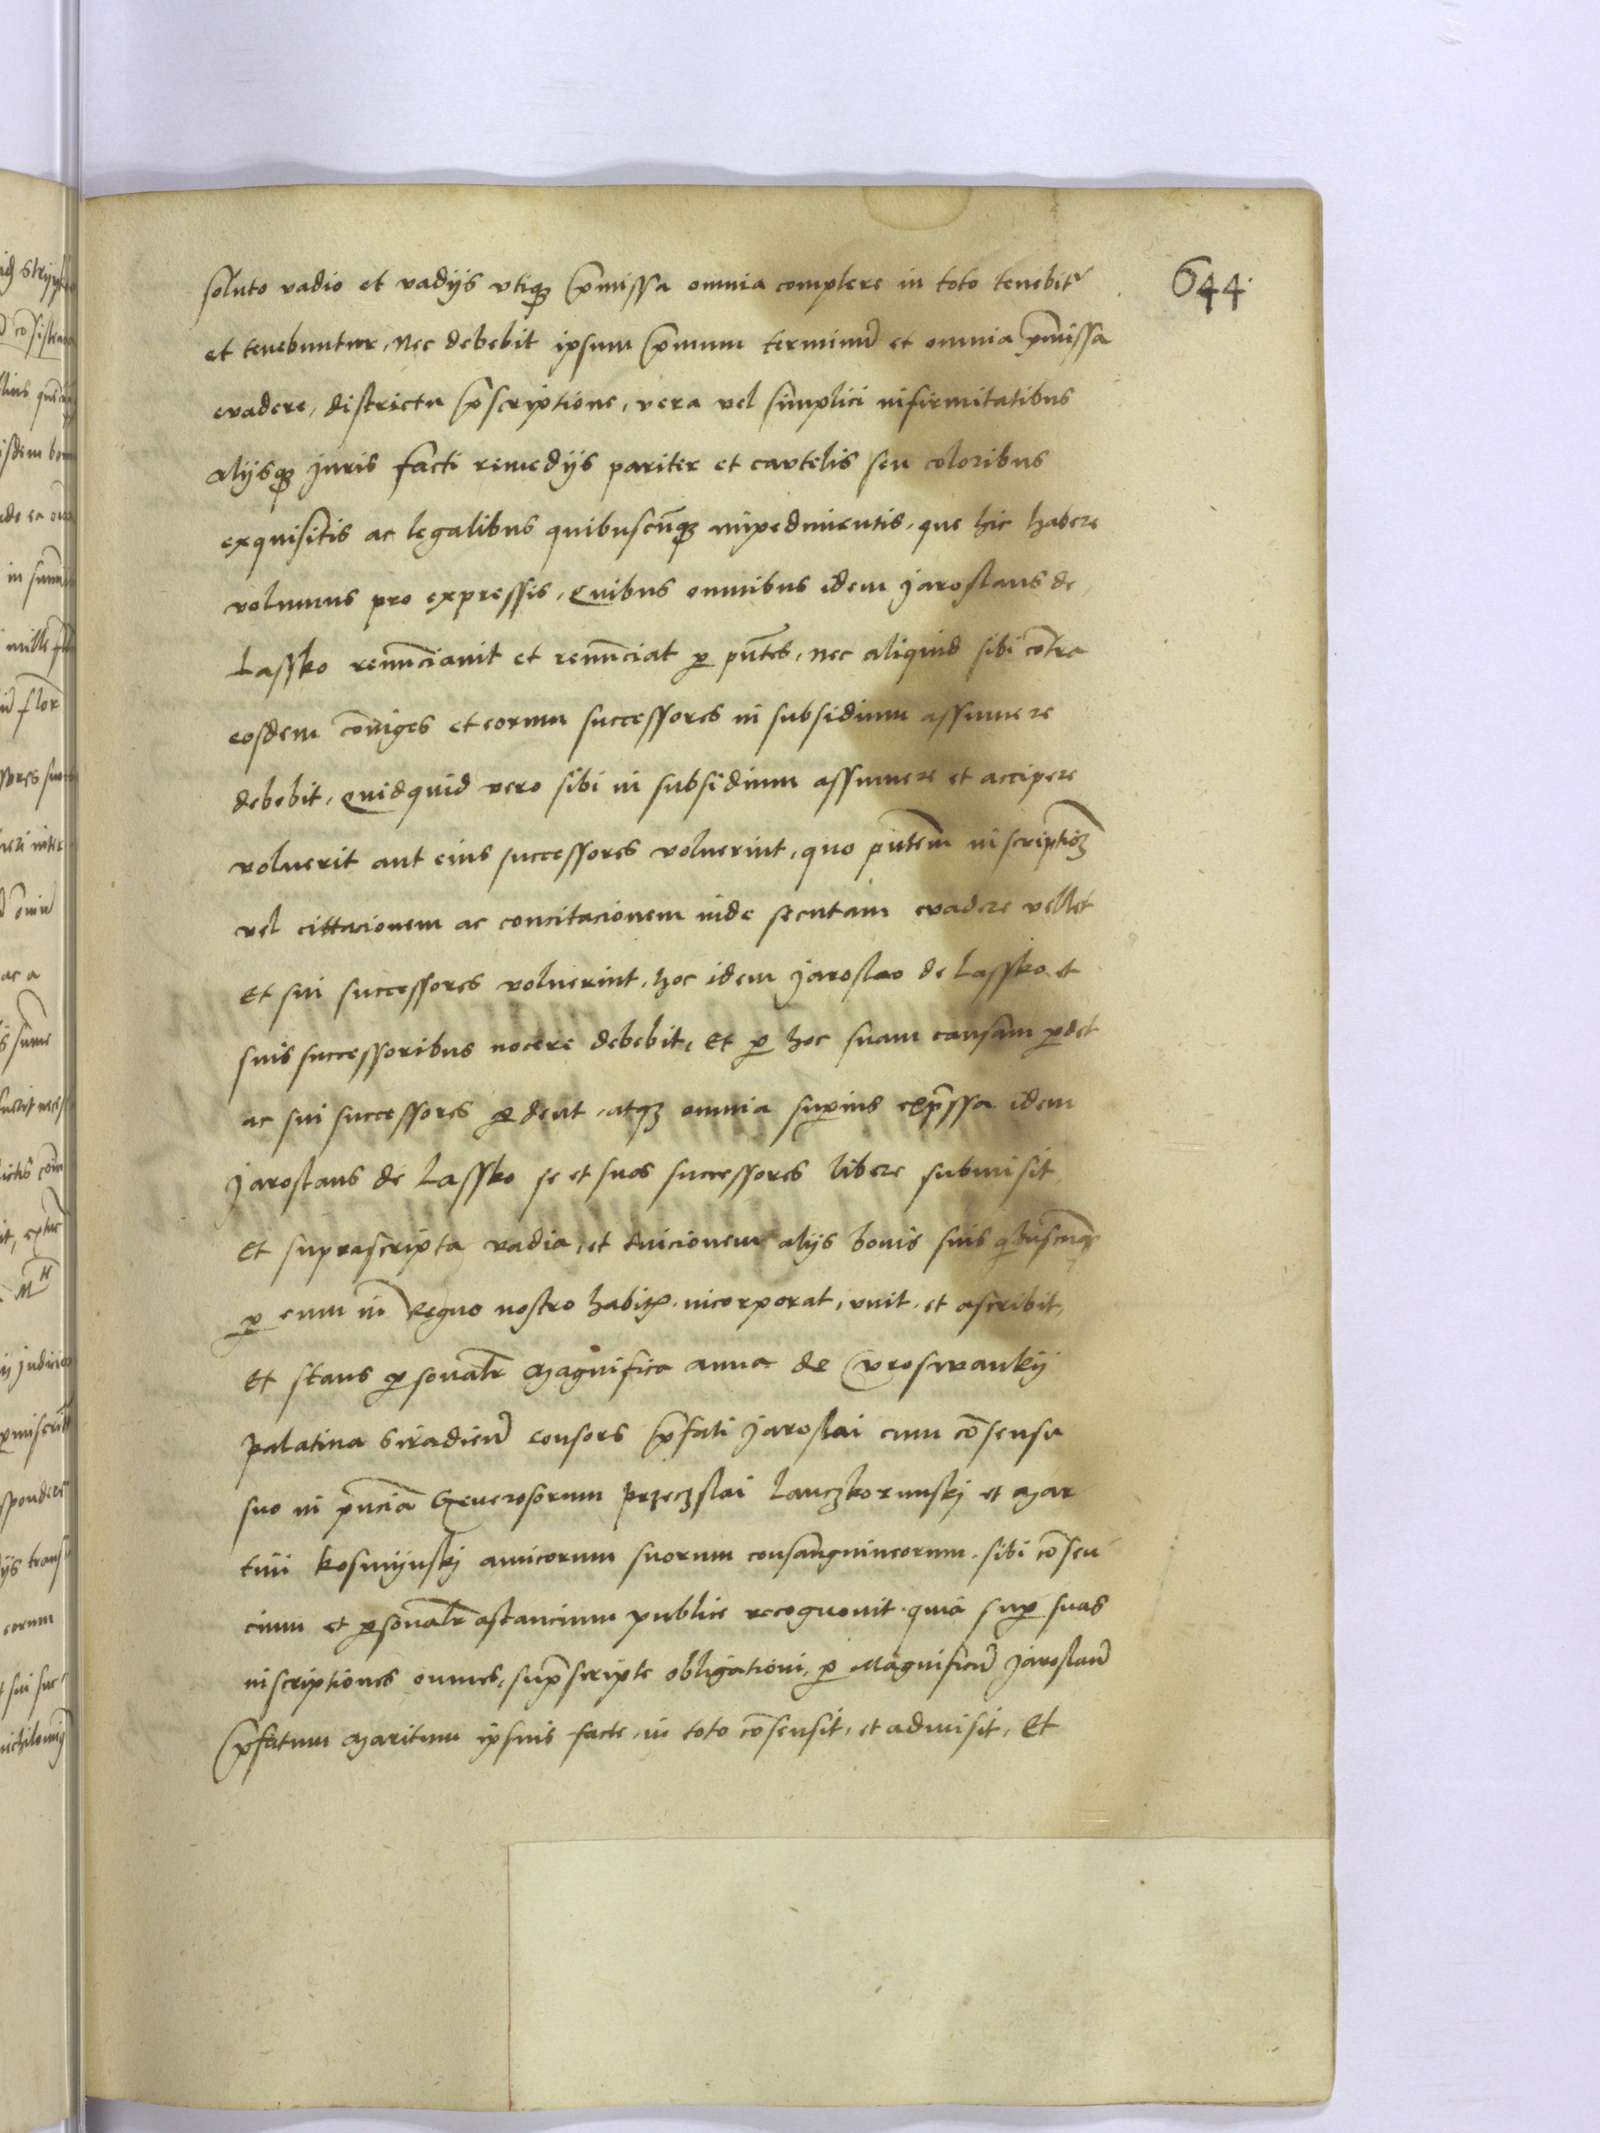 644.
soluto vadio et vadijs vtiqȝ p̄missa omnia complere in toto tenebitʳ
et tenebuntur, nec debebit ipsum p̄mum terminū et omnia p̄missa
evadere, districta p̄scriptione, vera vel simplici infirmitatibus
alijsqȝ juris facti remedijs pariter et cavtelis seu coloribus
exquisitis ac legalibus quibuscūqȝ impedimentis, que hic habere
volumus pro expressis, Quibus omnibus idem Jaroslaus de
Lassko renūciauit et renūciat ꝑ pn̄tes, nec aliquid sibi cōtra
eosdem cōiuges et eorum successores in subsidium assumere
debebit, Quidquid vero sibi in subsidium assumere et accipere
voluerit aut eius successores voluerint, quo pn̄tem inscriptioȝ
vel cittacionem ac concitacionem inde secutam evadere vellet
Et sui successores voluerint, hoc idem Jaroslao de Lassko et
suis successoribus nocere debebit, Et ꝑ hoc suam causam ꝑdet
ac sui successores ꝑdent, atqȝ omnia suꝑius exp̄ssa idem
Jaroslaus de Lassko se et suos successores libere submisit
Et suprascripta vadia, et euicionem alijs bonis suis qbuscūqȝ
ꝑ eum in Regno nostro habitꝭ incorporat, vnit, et ascribit,
Et stans ꝑsonalr̄ Magnifica anna de
palatina Siradień consors p̄fati Jaroslai cum cōsensu
suo in pn̄cia Generosorum Przeczslai Lanczkorunskj et Mar
tini kosmijnskj amicorum suorum consangnineorum sibi cōsen
cium et ꝑsonalr̄ astancium publice recognouit quia suꝑ suas
inscriptiones omnes, sup̄scripte obligationi, ꝑ Magnificū Jaroslaū
p̄fatum Maritum ipsius facte, in toto cōsensit, et admisit, Et